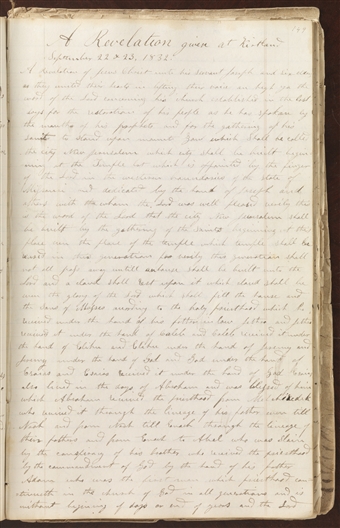 A Revelation given at Kirtland
September 22 & 23, 1832
A Revelation of Jesus Christ unto his servant Joseph and six elders
as they united their hearts in lifting their voices on high yea the
word of the Lord concerning his church established in the last
days for the restoration of his people as he has spoken by
the mouth of his prophets and for the gathering of his
saints to stand upon mount Zion which shall be called
the city New Jerusalem which city shall be built beginning
at the Temple lot which is appointed by the finger
of the Lord in the western boundaries of the State of
Missouri and dedicated by the hand of Joseph and
others with whom the Lord was well pleased verily this
is the word of the Lord that the city New Jerusalem shall
be built by the gathering of the saints beginning at this
place even the place of the temple which temple shall be
reared in this generation for verily this generation shall
not all pass away untill an house shall be built unto the
Lord and a cloud shall rest upon it which cloud shall be
even the glory of the Lord which shall fill the house and
the sons of Moses according to the holy priesthood which he
received under the hand of his father in law Jethro and Jethro
received it under the hand of Caleb and Caleb received it under
the hand of Elihu and Elihu under the hand of Jeremy and
Jeremy under the hand of Gad and Gad under the hand of
Esaias and Esaias received it under the hand of God Esaias
also lived in the days of Abraham and was blessed of him
which Abraham received the priesthood from Melchizedek
who received it through the lineage of his fathers even till
Noah and from Noah till Enoch through the lineage of
their fathers and from Enoch to Abel who was slain
by the conspiracy of his brother who received the priesthood
by the commandment of God by the hand of his father
Adam who was the first man which priesthood con
tinueth in the church of God in all generations and is
without beginning of days or end of years and the Lord